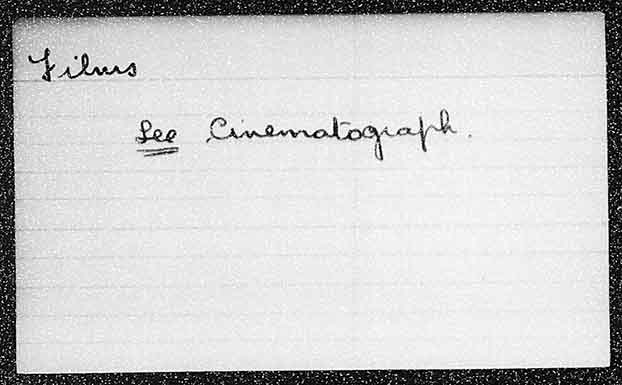 Films
See Cinematograph.